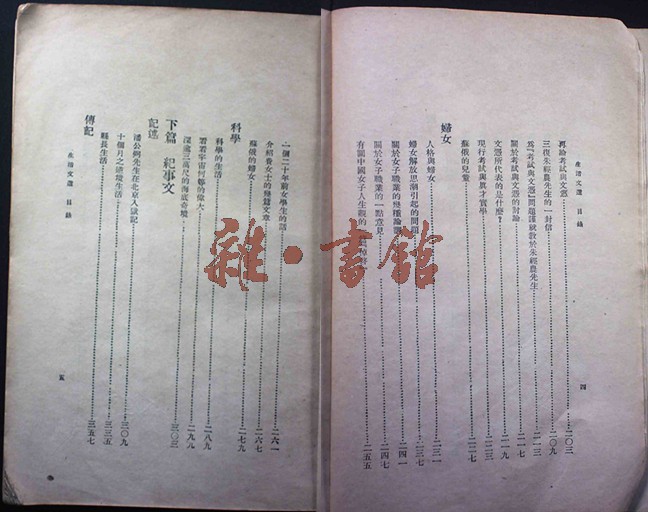 生活文選 目錄
再論考試與文憑……二〇三
三復朱經農先生的一封信……二〇九
為「考試與文憑」問題謹就教於朱經農先生……二一三
關於考試與文憑的討論……二一七
文憑所代表的是什麼？……二一九
現行考試與真才實學……二二三
蘇俄的兒童……二二七
婦女
人格與婦女……二三一
婦女解放思潮引起的問題……二三七
關於女子職業的幾種論……二四一
關於女子職業的一點意見……二四七
有關中國女子人生觀的……二五五
四
生活文選 目錄
一個二十年前女學生的話……二六一
介紹費女士的幾篇文章……二六七
蘇俄的婦女……二七九
科學
科學的生活……二八九
看看宇宙何等的偉大……二九九
深處三萬尺的海底奇境……三〇三
下篇 紀事文
記述
潘公弼先生在北京入獄記……三〇九
十個月之環境生活……三三五
縣長生活……三五七
傳記
五
雜·書館